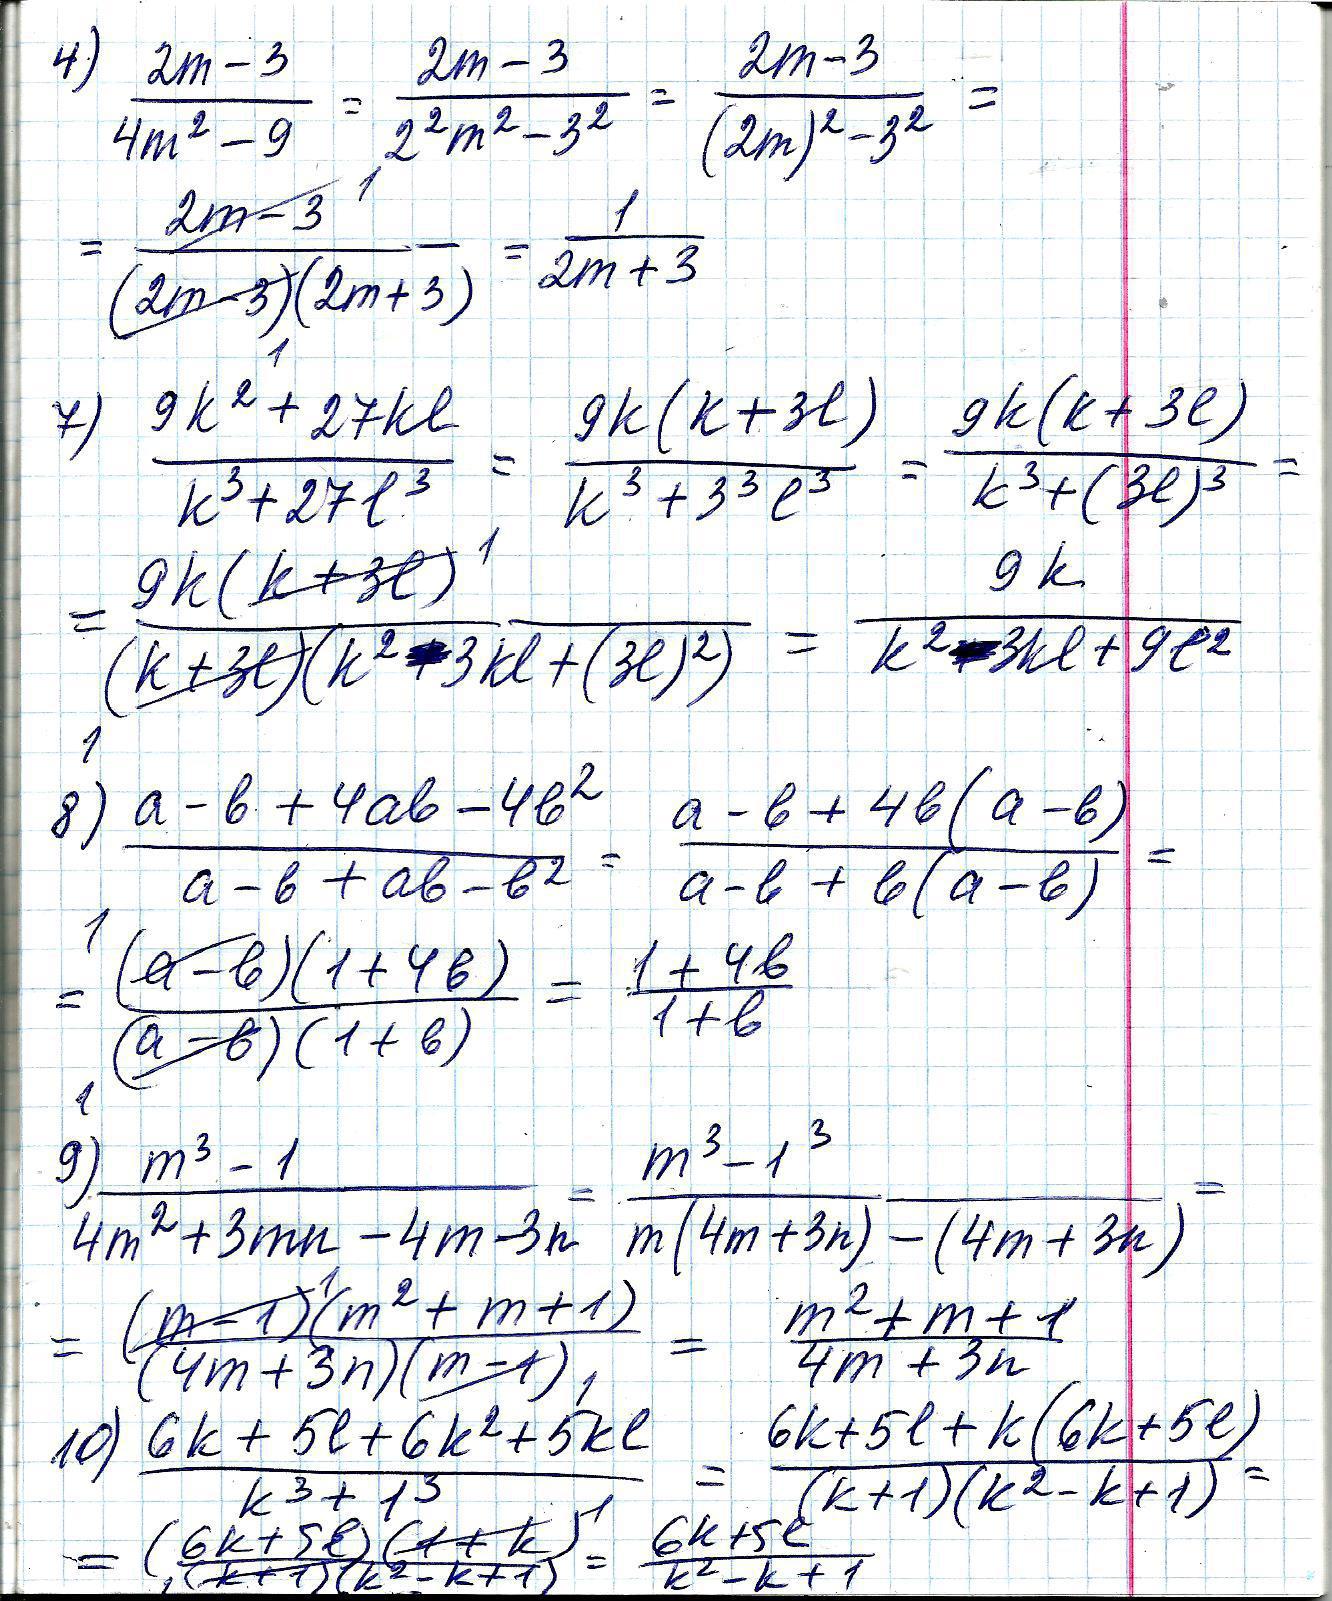 4) (2m-3)/(4m²-9) = (2m-3)/(2²m²-3²) = (2m-3)/((2m)²-3²) =
= (2m-3)¹/((2m-3)(2m+3)) = 1/(2m+3)
1
7) (9k²+27kl)/(k³+27l³) = (9k(k+3l))/(k³+3³l³) = (9k(k+3l))/(k³+(3l)³) =
= (9k(k+3l)¹)/((k+3l)(k²-3kl+(3l)²)) = 9k/(k²-3kl+9l²)
1
8) (a-b+4ab-4b²)/(a-b+ab-b²) = (a-b+4b(a-b))/(a-b+b(a-b)) =
1
= ((a-b)(1+4b))/((a-b)(1+b)) = (1+4b)/(1+b)
1
9) (m³-1)/(4m²+3mn-4m-3n) = (m³-1³)/(m(4m+3n)-(4m+3n)) =
= ((m-1)¹(m²+m+1))/((4m+3n)(m-1)₁) = (m²+m+1)/(4m+3n)
10) (6k+5l+6k²+5kl)/(k³+1³) = (6k+5l+k(6k+5l))/((k+1)(k²-k+1)) =
= ((6k+5l)(1+k)¹)/(₁(k+1)(k²-k+1)) = (6k+5l)/(k²-k+1)